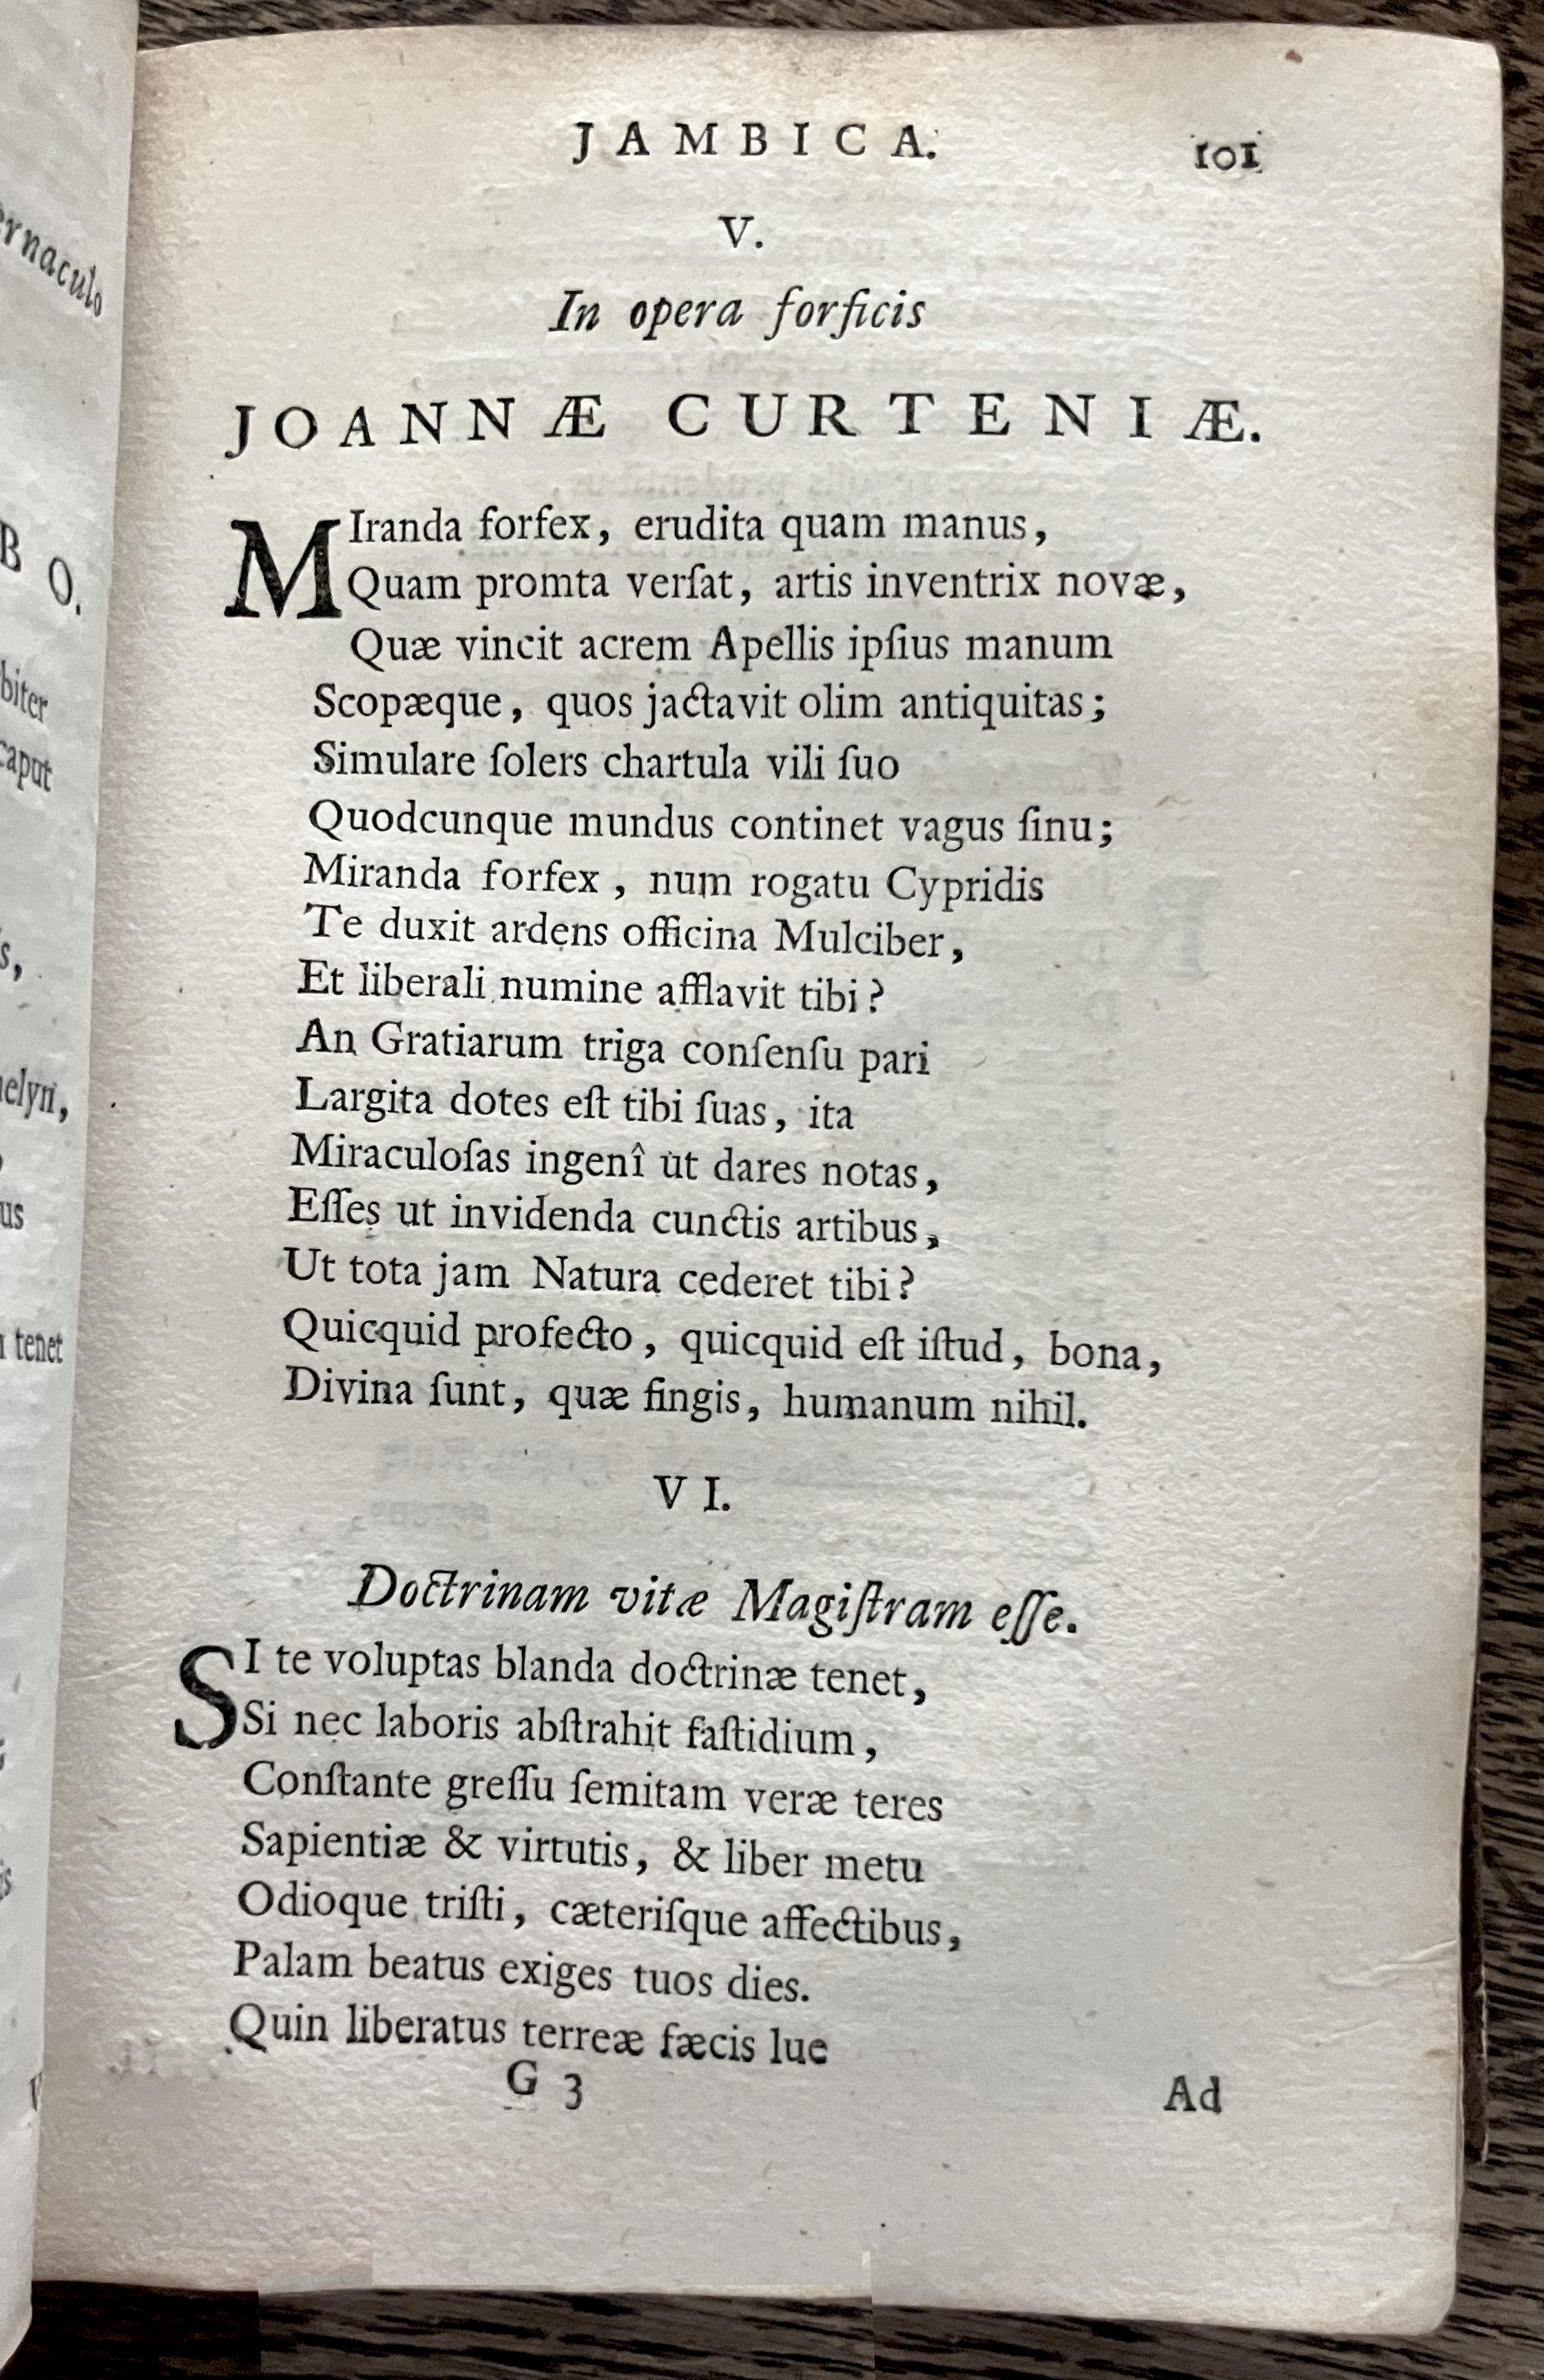 ernaculo
B O.
biter
caput
s,
nelyn,
us
tenet
JAMBICA. 101
V.
In opera forficis
JOANNÆ CURTENIÆ.
MIranda forfex, erudita quam manus,
Quam promta verſat, artis inventrix novæ,
Quæ vincit acrem Apellis ipſius manum
Scopæque, quos jactavit olim antiquitas;
Simulare ſolers chartula vili ſuo
Quodcunque mundus continet vagus ſinu;
Miranda forfex, num rogatu Cypridis
Te duxit ardens officina Mulciber,
Et liberali numine afflavit tibi?
An Gratiarum triga conſenſu pari
Largita dotes eſt tibi ſuas, ita
Miraculoſas ingenî ut dares notas,
Eſſes ut invidenda cunctis artibus,
Ut tota jam Natura cederet tibi?
Quicquid profecto, quicquid eſt iſtud, bona,
Divina ſunt, quæ fingis, humanum nihil.
VI.
Doctrinam vitæ Magiſtram eſſe.
SI te voluptas blanda doctrinæ tenet,
Si nec laboris abſtrahit faſtidium,
Conſtante greſſu ſemitam veræ teres
Sapientiæ & virtutis, & liber metu
Odioque triſti, cæteriſque affectibus,
Palam beatus exiges tuos dies.
Quin liberatus terreæ fæcis lue
G 3 Ad